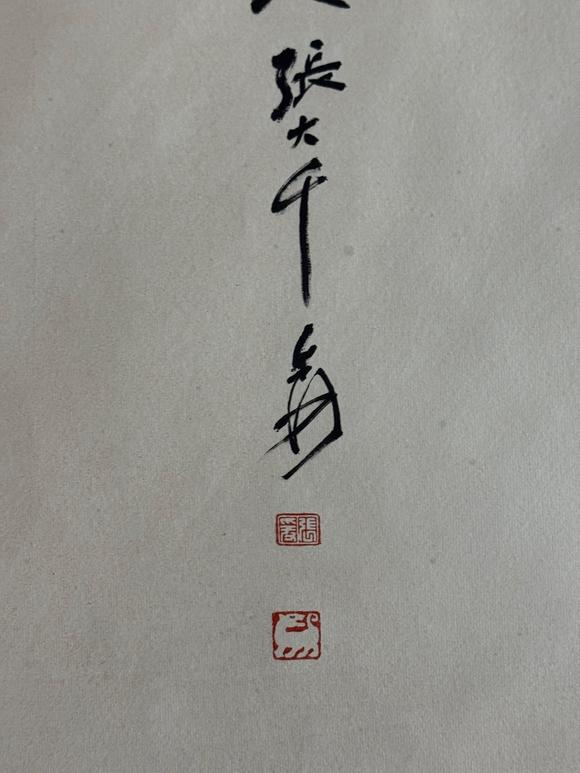 張大千爰
張爰